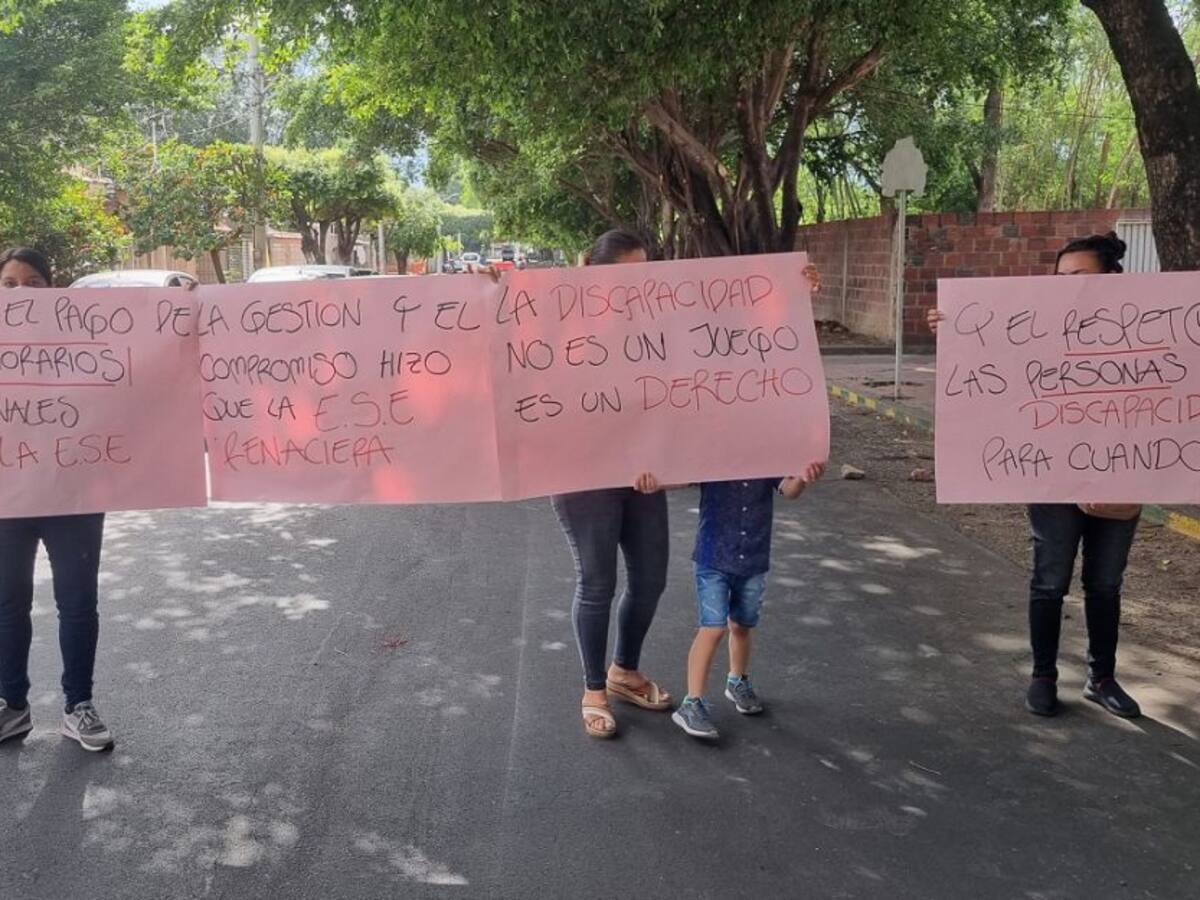 EL PAGO DE
ORARIOS!
NALES
LA E.S.E
LA GESTION Y EL
COMPROMISO HIZO
QUE LA E.S.E
RENACIERA
LA DISCAPACIDAD
NO ES UN JUEGO
ES UN DERECHO
Y EL RESPETO
LAS PERSONAS
DISCAPACID
PARA CUANDO